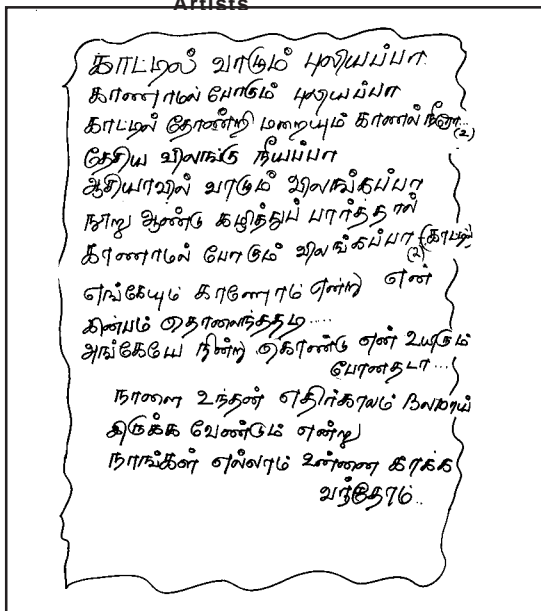 Artists
காட்டில் வாடும் புலியப்பா
காணாமல் போகும் புலியப்பா
காட்டில் தோன்றி மறையும் காணல் நீரா... (2)
தேசிய விலங்கு நீயப்பா
ஆசியாவில் வாடும் விலங்கப்பா
நூறு ஆண்டு கழித்துப் பார்த்தால்
காணாமல் போகும் விலங்கப்பா (2) (காட்டில்)
எங்கேயும் காணோம் என்று என்
இன்பம் தொலைந்ததடி....
அங்கேயே நின்று கொண்டு என் உயிரும்
போனதடா...
நாளை உந்தன் எதிர்காலம் நலமாய்
இருக்க வேண்டும் என்று
நாங்கள் எல்லாம் உன்னை காக்க
வந்தோம்..